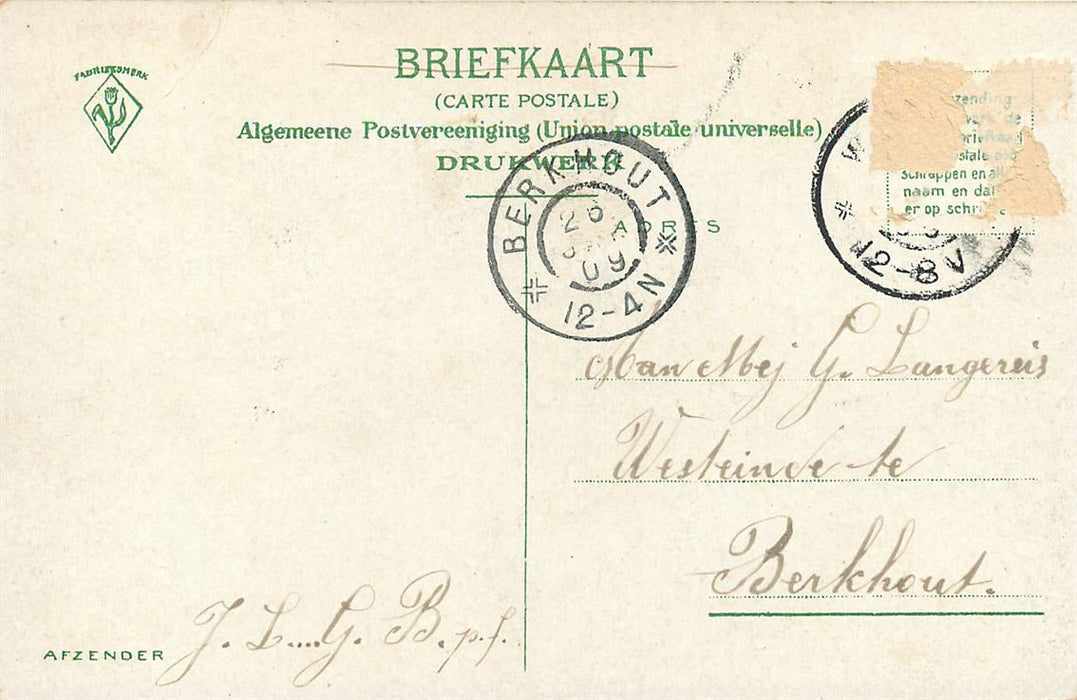 FABRIEKSMERK
BRIEFKAART
(CARTE POSTALE)
Algemeene Postvereeniging (Union postale universelle)
DRUKWERK
BERKHOUT
26
09
12-4N
ADRES
zending
de
schrappen en
naam en
er op
W
12-8V
Aan Mej G. Langereis
Westeinde te
Berkhout.
AFZENDER
J. L....G. B. p.f.